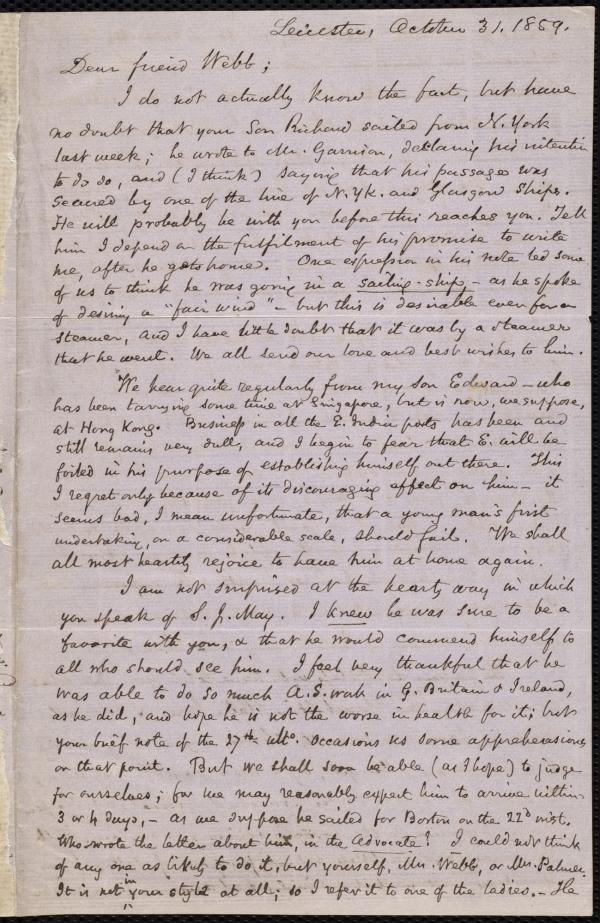 Leicester, October 31. 1859.
Dear friend Webb;
I do not actually know the fact, but have
no doubt that your Son Richard sailed from N. York
last week; he wrote to Mr. Garrison, declaring his intention
to do so, and (I think) saying that his passage was
secured by one of the line of N. Yk. and Glasgow Ships.
He will probably be with you before this reaches you. Tell
him I depend on the fulfilment of his promise to write
me, after he gets home. One expression in his note led some
of us to think he was going in a sailing-ship, - as he spoke
of desiring a "fair wind" - but this is desirable even for a
steamer, and I have little doubt that it was by a steamer
that he went. We all send our love and best wishes to him.
We hear quite regularly from my son Edward - who
has been tarrying some time at Singapore, but is now, we suppose,
at Hong Kong. Business in all the E. India ports has been and
still remains very dull, and I begin to fear that E. will be
foiled in his purpose of establishing himself out there. This
I regret only because of its discouraging effect on him - it
seems bad, I mean unfortunate, that a young man's first
undertaking, on a considerable scale, should fail. We shall
all most heartily rejoice to have him at home again.
I am not surprised at the hearty way in which
you speak of S. J. May. I knew he was sure to be a
favorite with you, & that he would commend himself to
all who should see him. I feel very thankful that he
was able to do so much A.S. work in G. Britain & Ireland,
as he did, and hope he is not the worse in health for it; but
your brief note of the 27th ulto. occasions us some apprehensions
on that point. But we shall soon be able (as I hope) to judge
for ourselves; for we may reasonably expect him to arrive within
3 or 4 days, - as we suppose he sailed for Boston on the 22d inst.
Who wrote the letter about him, in the Advocate? I could not think
of any one as likely to do it, but yourself, Mrs. Webb, or Mrs. Palmer.
It is not in your style at all; so I refer it to one of the ladies. - He